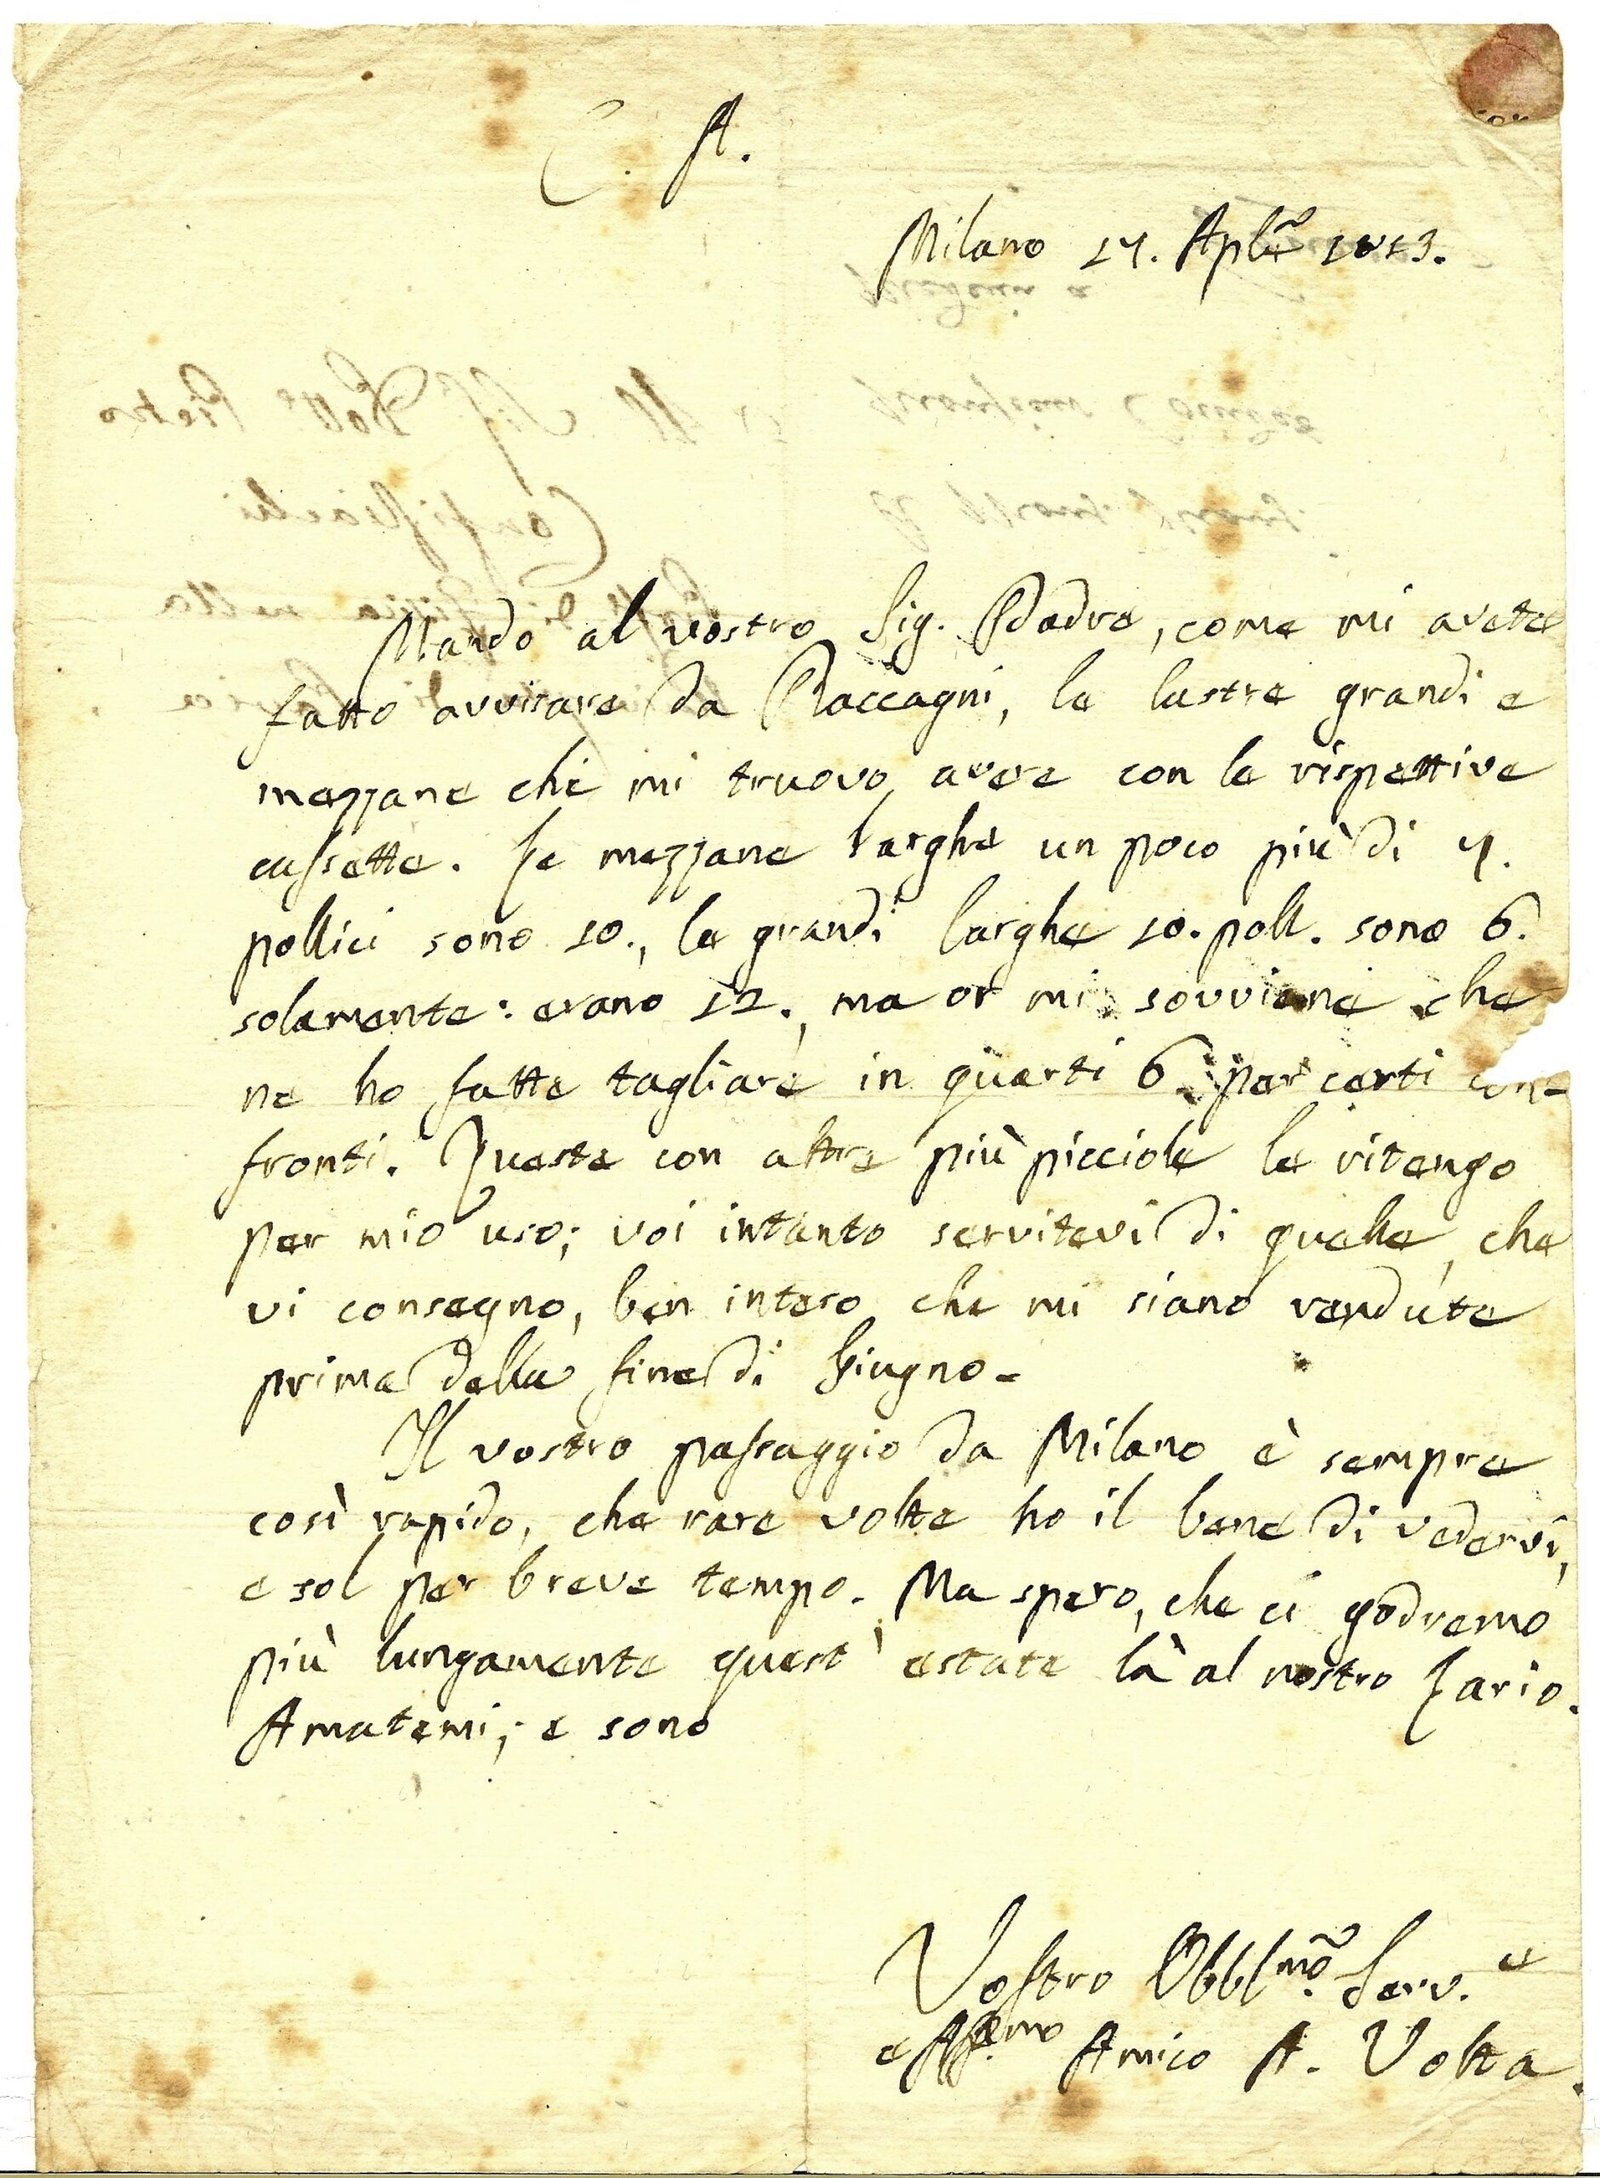 C. A.
Milano 17. Aple 1813.
Mando al vostro Sig. Padre, come mi avete
fatto avvisare da Baccagni, le lastre grandi e
mezzane che mi truovo avere con le rispettive
cassette. Le mezzane larghe un poco più di 4.
pollici sono 10., le grandi larghe 10. poll. sono 6.
solamente: erano 12., ma or mi sovviene che
ne ho fatte tagliare in quarti 6. per certi con-
fronti. Queste con altre più picciole le ritengo
per mio uso; voi intanto servitevi di quelle, che
vi consegno, ben inteso che mi siano vendute
prima della fine di Giugno.
Il vostro passaggio da Milano è sempre
così rapido, che rare volte ho il bene di vedervi,
e sol per breve tempo. Ma spero, che ci godremo
più lungamente quest'estate là al nostro Lario.
Amatemi; e sono
Vostro Obblmo. Serv.e
e Aff.mo Amico A. Volta.
Il Sigr Dottr Pietro
Configliachi